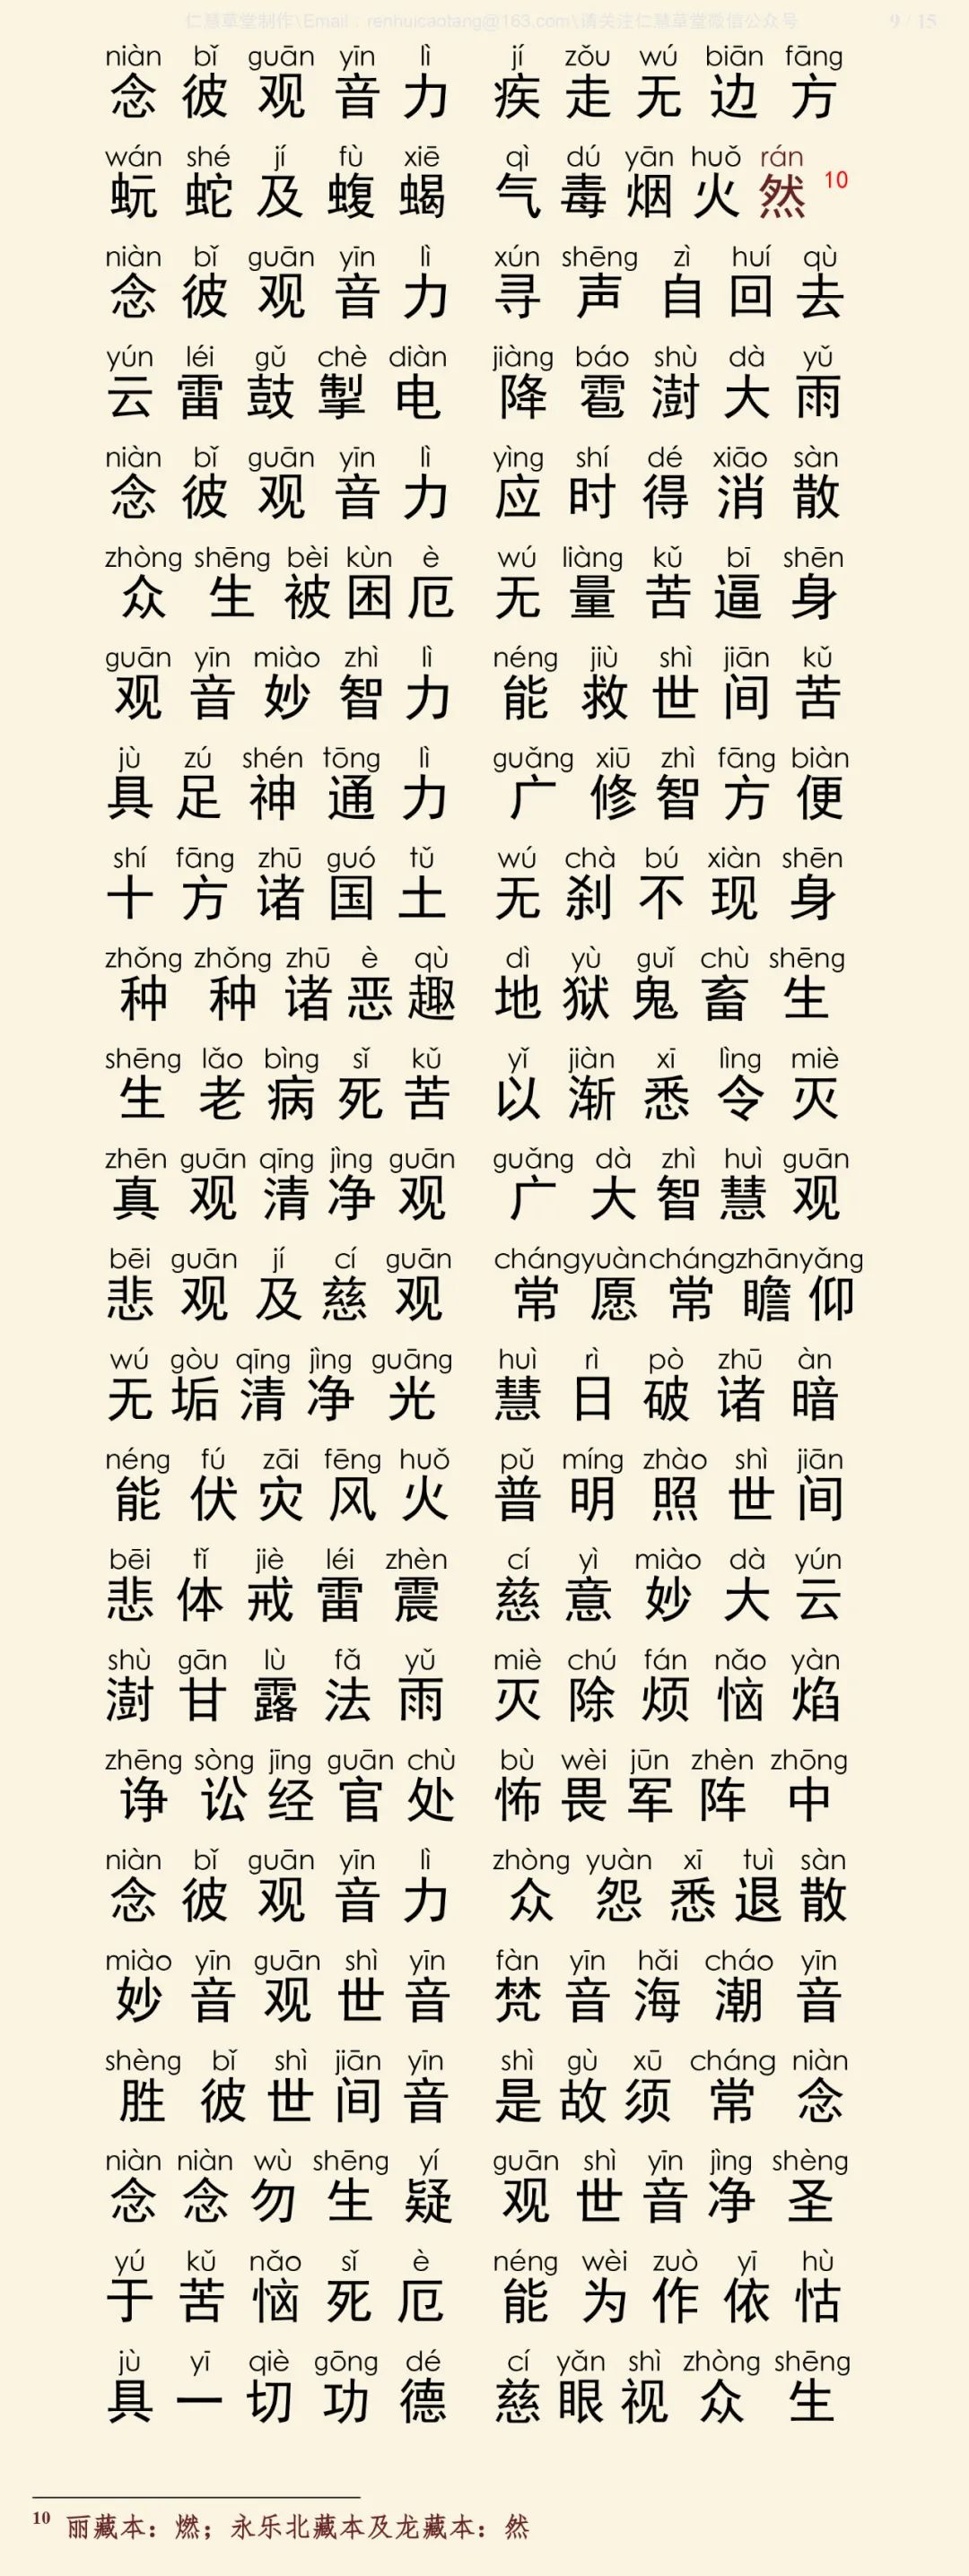 仁慧草堂制作\Email：renhuicaotang@163.com\请关注仁慧草堂微信公众号 9 / 15
niàn bǐ guān yīn lì jí zǒu wú biān fāng
念彼观音力 疾走无边方
wán shé jí fù xiē qì dú yān huǒ rán
蚖蛇及蝮蝎 气毒烟火然 10
niàn bǐ guān yīn lì xún shēng zì huí qù
念彼观音力 寻声自回去
yún léi gǔ chè diàn jiàng báo shù dà yǔ
云雷鼓掣电 降雹澍大雨
niàn bǐ guān yīn lì yìng shí dé xiāo sàn
念彼观音力 应时得消散
zhòng shēng bèi kùn è wú liàng kǔ bī shēn
众生被困厄 无量苦逼身
guān yīn miào zhì lì néng jiù shì jiān kǔ
观音妙智力 能救世间苦
jù zú shén tōng lì guǎng xiū zhì fāng biàn
具足神通力 广修智方便
shí fāng zhū guó tǔ wú chà bú xiàn shēn
十方诸国土 无刹不现身
zhǒng zhǒng zhū è qù dì yù guǐ chù shēng
种种诸恶趣 地狱鬼畜生
shēng lǎo bìng sǐ kǔ yǐ jiàn xī lìng miè
生老病死苦 以渐悉令灭
zhēn guān qīng jìng guān guǎng dà zhì huì guān
真观清净观 广大智慧观
bēi guān jí cí guān cháng yuàn cháng zhān yǎng
悲观及慈观 常愿常瞻仰
wú gòu qīng jìng guāng huì rì pò zhū àn
无垢清净光 慧日破诸暗
néng fú zāi fēng huǒ pǔ míng zhào shì jiān
能伏灾风火 普明照世间
bēi tǐ jiè léi zhèn cí yì miào dà yún
悲体戒雷震 慈意妙大云
shù gān lù fǎ yǔ miè chú fán nǎo yàn
澍甘露法雨 灭除烦恼焰
zhēng sòng jīng guān chù bù wèi jūn zhèn zhōng
诤讼经官处 怖畏军阵中
niàn bǐ guān yīn lì zhòng yuàn xī tuì sàn
念彼观音力 众怨悉退散
miào yīn guān shì yīn fàn yīn hǎi cháo yīn
妙音观世音 梵音海潮音
shèng bǐ shì jiān yīn shì gù xū cháng niàn
胜彼世间音 是故须常念
niàn niàn wù shēng yí guān shì yīn jìng shèng
念念勿生疑 观世音净圣
yú kǔ nǎo sǐ è néng wèi zuò yī hù
于苦恼死厄 能为作依怙
jù yī qiè gōng dé cí yǎn shì zhòng shēng
具一切功德 慈眼视众生
10 丽藏本：燃；永乐北藏本及龙藏本：然